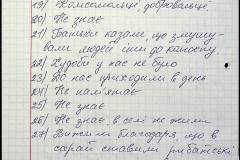 19) Комсомольці, добровольці.
20) Не знає
21) Батьки казали, що змушу-
вали людей іти до колгоспу
22) Худоби у нас не було
23) До нас приходили в день
24) Не пам'ятає
25) Не знає
26) Не знає, в селі не жили
27) Вижили благодаря, що в
сараї ставили рибатські